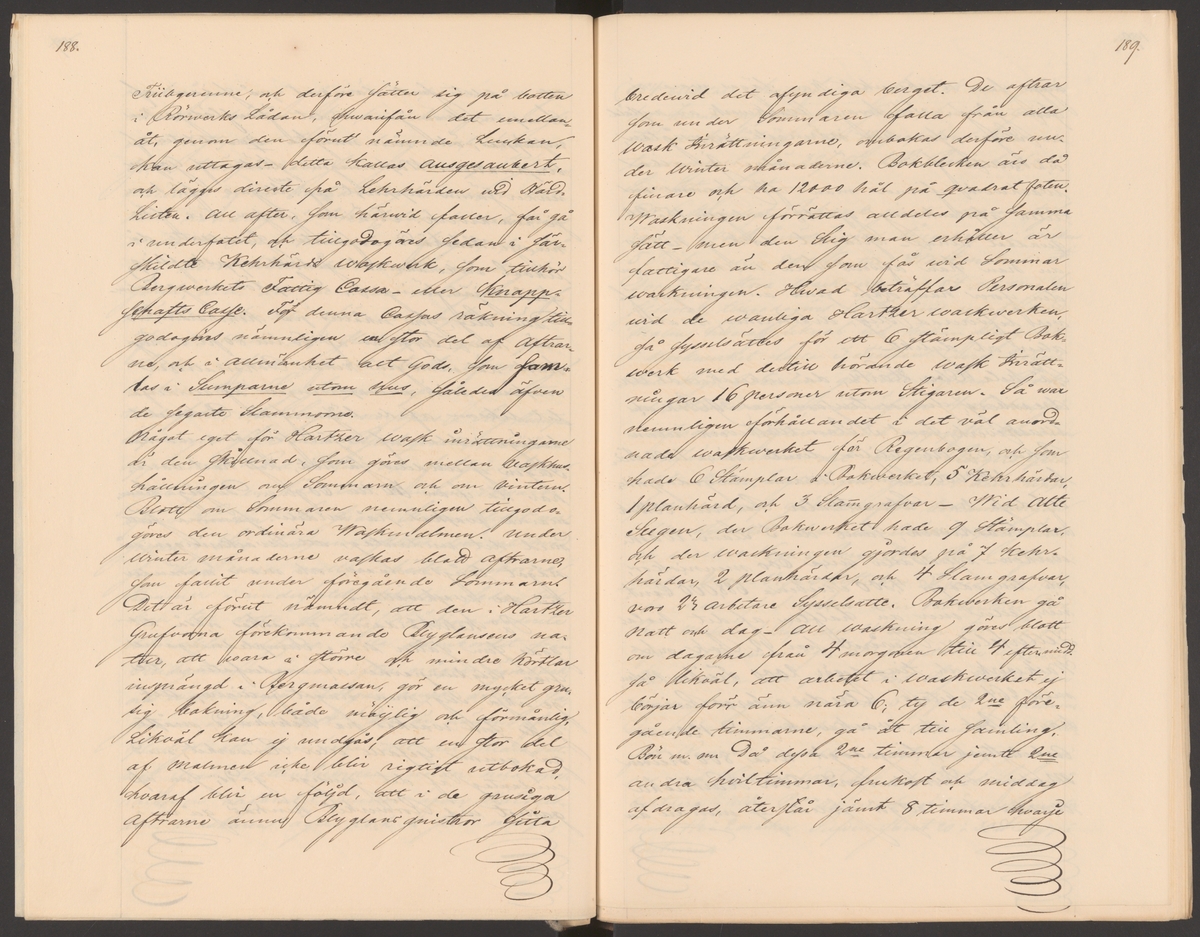 188.
Trübgerenne; och derföre sätter sig på botten
i Rörwerks Lådan, hwarifån det emellan-
åt, genom den förut nämnde Luckan,
kan uttagas – detta kallas Ausgesaubert,
och lägges directe på Kehrhärden wid Härd-
Listen. All after, som härwid faller, får gå
i underfatet, och tillgodogöres sedan i Sär-
skildte Kehrhärds waskwerk, som tillhör
Bergwerkets Fattig Cassa – eller Knapp-
schafts Casse. För denna Cassas räkning till-
godogöres nämnligen en stor del af Aftrar-
ne, och i allmänhet alt Gods, som sam-
las i Sumparne utom hus, således äfven
de segaste Slammorne.
Något eget för Hartzer wask inrättningarne
är den skillnad, som göres mellan waskhus-
hållningen om Sommarn och om vintern.
Blott om Sommaren nemnligen tillgodo-
göres den ordinära Waskmalmen. Under
Winter månaderne vaskas blott aftrarne,
som fallit under föregående Sommarn.
Det är förut nämndt, att den i Hartzer
Grufvorna förekommande Blyglansens na-
tur, att wara i större och mindre Körtlar
insprängd i Bergmassan, gör en mycket gru-
sig bokning, både möjlig och förmånlig.
Likväl kan ej undgås, att en stor del
af malmen icke blir rigtigt utbokad,
hvaraf blir en följd, att i de grusiga
Aftrarne ännu Blyglans gnistror sitta
189.
bredewid det ofyndiga berget. De aftrar
som under Sommaren falla från alla
Wask Inrättningarne, ombokas derföre un-
der Winter månaderne. Bokblecken äro då
finare och ha 12000 hål på quadrat foten.
Waskningen förrättas alldeles på samma
sätt – men den Slig man erhåller är
fattigare än den som fås wid Sommar
waskningen. Hwad beträffar Personalen
wid de wanliga Hartzer waskwerken,
så sysselsättes för ett 6 stämpligt Bok-
werk med dertill hörande wask Inrätt-
ningar 16 personer utom Stigaren. Så war
nemnligen förhållandet i det väl anord-
nade waskwerket för Regenbogen, och som
hade 6 Stämplar i Bokwerket, 5 Kehrhärdar,
1 planhärd, och 3 Slamgrafvar – Wid Alte
Seegen, der Bokwerket hade 9 Stämplar,
och der waskningen gjordes på 7 Kehr-
härdar, 2 planhärdar, och 4 Slamgrafvar,
voro 23 arbetare Sysselsatte. Bokwerken gå
Natt och dag – All waskning göres blott
om dagarne från 4 morgonen till 4 eftermidd.
Så likväl, att arbetet i waskwerket ej
börjar förr änn nära 6; ty de 2ne före-
gående timmarne, gå åt till samling,
Bön m. m. Då dessa 2ne timmar jemte 2ne
andra hviltimmar, frukost och middag
afdragas, återstår jämt 8 timmar hwarje